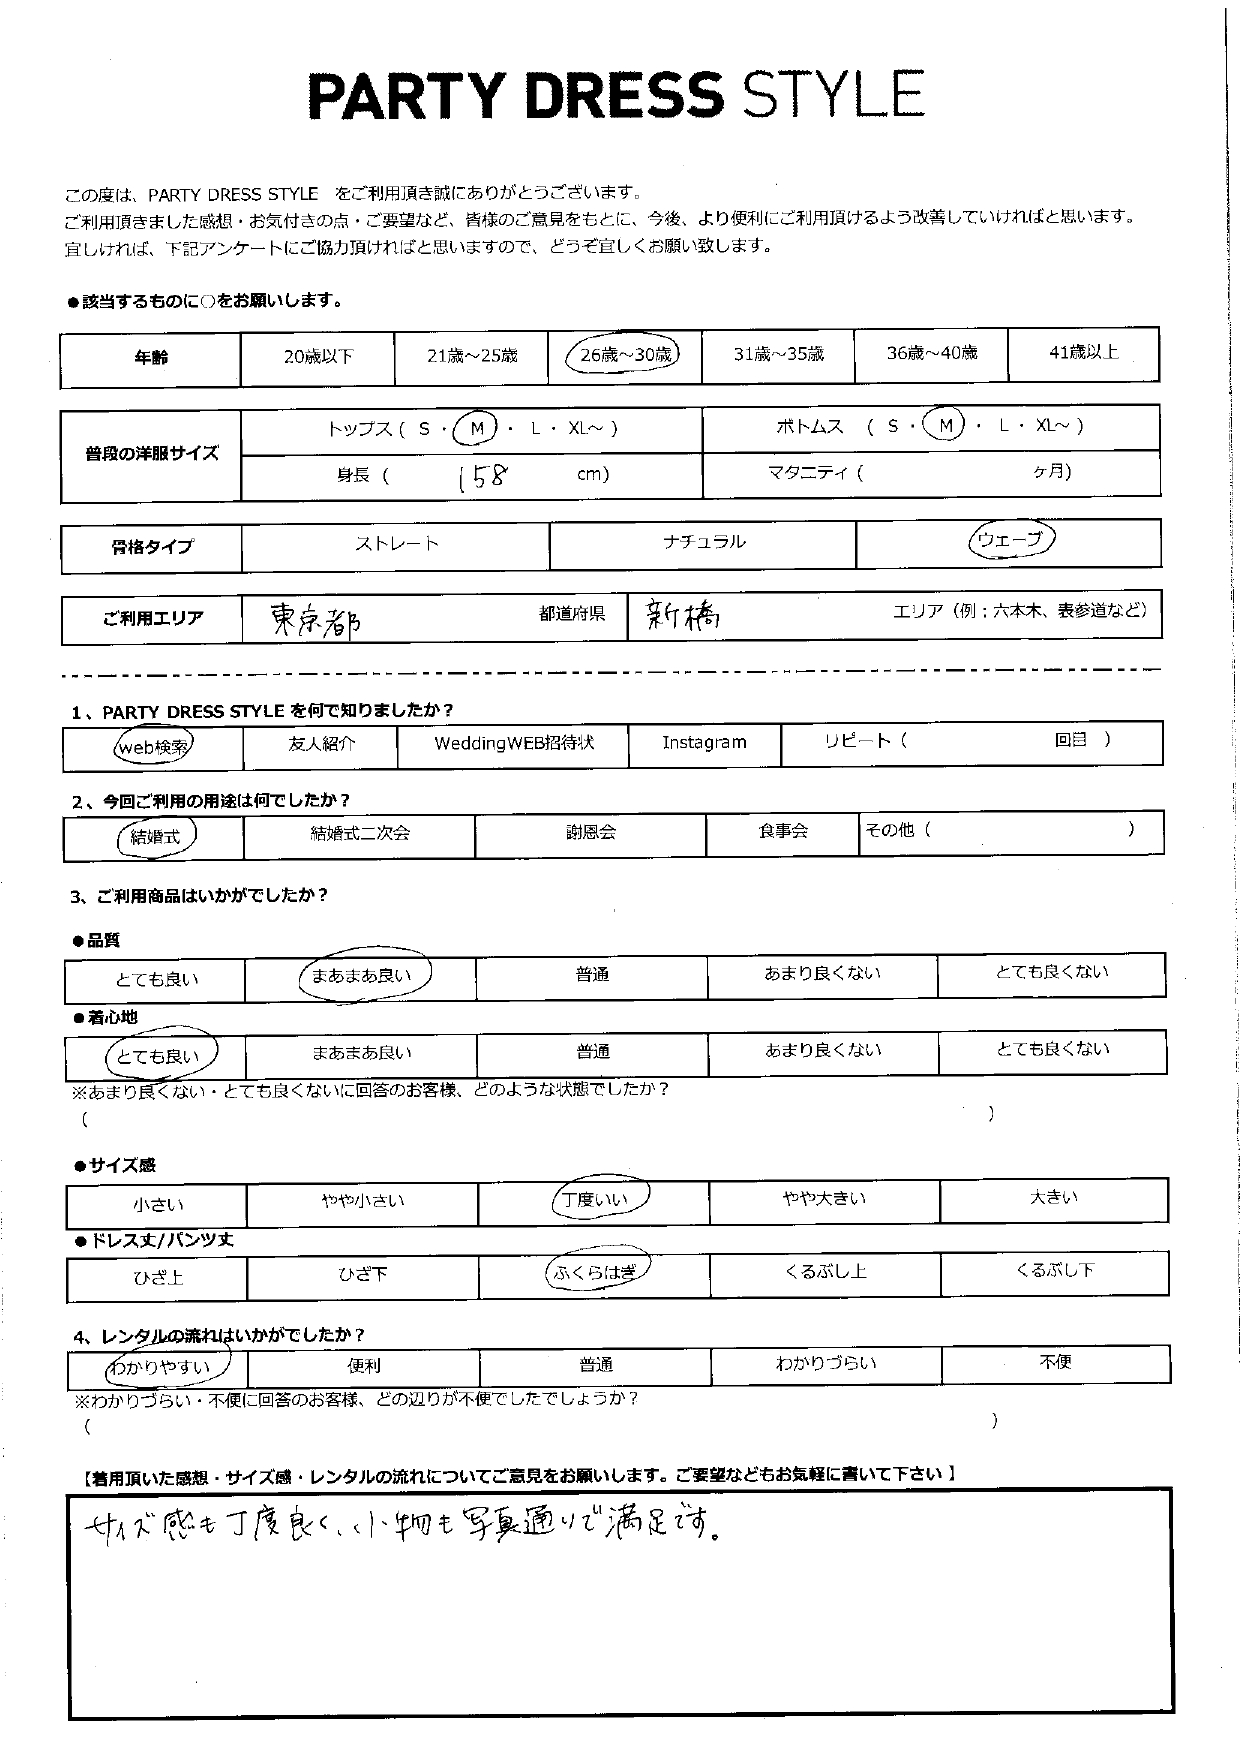 PARTY DRESS STYLE
この度は、PARTY DRESS STYLE をご利用頂き誠にありがとうございます。
ご利用頂きました感想・お気付きの点・ご要望など、皆様のご意見をもとに、今後、より便利にご利用頂けるよう改善していければと思います。
宜しければ、下記アンケートにご協力頂ければと思いますので、どうぞ宜しくお願い致します。
●該当するものに○をお願いします。
年齢 20歳以下 21歳～25歳 26歳～30歳 31歳～35歳 36歳～40歳 41歳以上
普段の洋服サイズ トップス ( S ・ M ・ L ・ XL～ ) ボトムス ( S ・ M ・ L ・ XL～ )
身長 ( 158 cm) マタニティ ( ヶ月)
骨格タイプ ストレート ナチュラル ウェーブ
ご利用エリア 東京都 都道府県 新橋 エリア（例；六本木、表参道など）
1、PARTY DRESS STYLE を何で知りましたか？
web検索 友人紹介 WeddingWEB招待状 Instagram リピート ( 回目 )
2、今回ご利用の用途は何でしたか？
結婚式 結婚式二次会 謝恩会 食事会 その他 ( )
3、ご利用商品はいかがでしたか？
●品質
とても良い まあまあ良い 普通 あまり良くない とても良くない
●着心地
とても良い まあまあ良い 普通 あまり良くない とても良くない
※あまり良くない・とても良くないに回答のお客様、どのような状態でしたか？
( )
●サイズ感
小さい やや小さい 丁度いい やや大きい 大きい
●ドレス丈/パンツ丈
ひざ上 ひざ下 ふくらはぎ くるぶし上 くるぶし下
4、レンタルの流れはいかがでしたか？
わかりやすい 便利 普通 わかりづらい 不便
※わかりづらい・不便に回答のお客様、どの辺りが不便でしたでしょうか？
( )
【着用頂いた感想・サイズ感・レンタルの流れについてご意見をお願いします。ご要望などもお気軽に書いて下さい】
サイズ感も丁度良く、小物も写真通りで満足です。